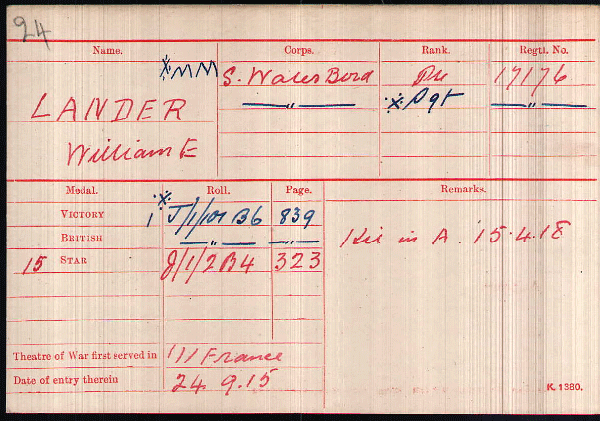 24
Name. Corps. Rank. Regtl. No.
※MM S. Wales Bord Pte 17176
LANDER —"— ※Sgt —"—
William E
Medal. Roll. Page. Remarks.
VICTORY 1 ※ J/1/101 B6 839
BRITISH —"— —"— Kil in A. 15.4.18
15 STAR J/1/2 B4 323
Theatre of War first served in (1) France
Date of entry therein 24.9.15
K. 1380.